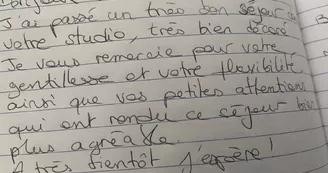 J'ai passé un très bon séjour
votre studio, très bien décoré
Je vous remercie pour votre
gentillesse et votre flexibilité
ainsi que vos petites attentions
qui ont rendu ce séjour bien
plus agréable
A très bientôt j'espère !